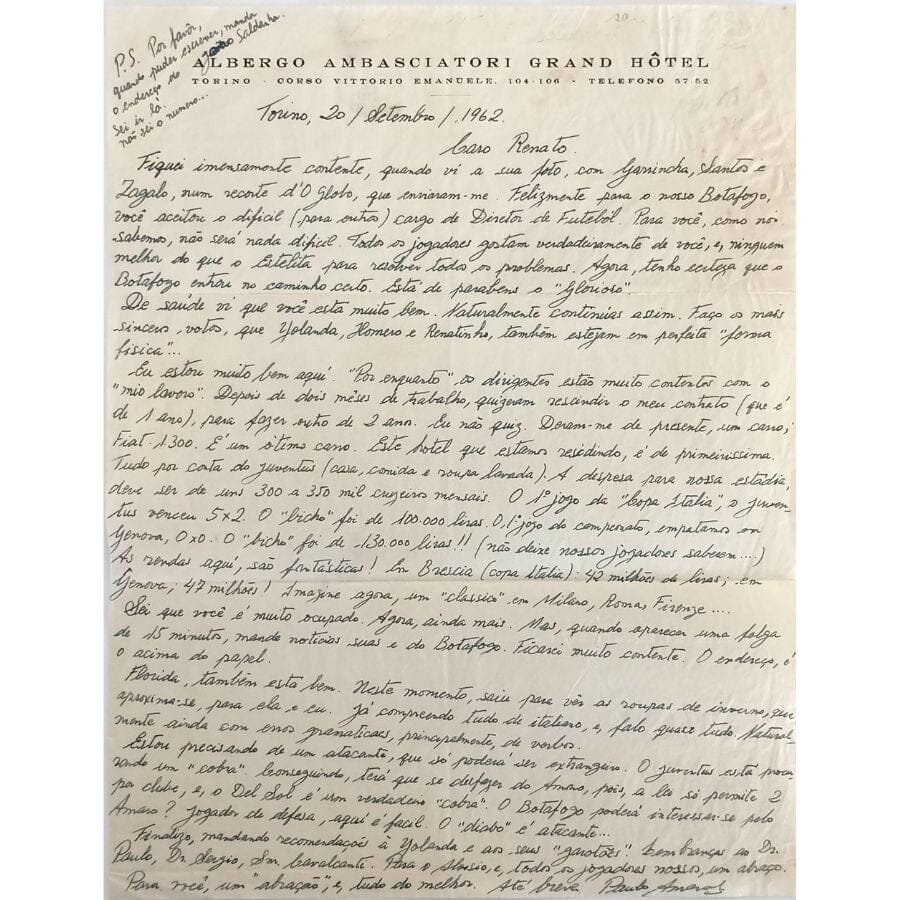 P.S. Por favôr,
quando puder escrever, manda
o endereço do João Saldanha.
Sei ir lá.
não sei o numero...
ALBERGO AMBASCIATORI GRAND HÔTEL
TORINO - CORSO VITTORIO EMANUELE, 104-106 - TELEFONO 57-52
Torino, 20/Setembro/1962.
Caro Renato.
Fiquei imensamente contente, quando vi a sua foto, com Garrincha, Santos e
Zagalo, num recorte d'O Globo, que enviaram-me. Felizmente para o nosso Botafogo,
você aceitou o dificil (para outros) cargo de Diretor de Futebol. Para você, como nós
sabemos, não será nada dificil. Todos os jogadores gostam verdadeiramente de você, e, ninguem
melhor do que o Estelita para resolver todos os problemas. Agora, tenho certeza que o
Botafogo entrou no caminho certo. Está de parabens o "Glorioso".
De saúde vi que você esta muito bem. Naturalmente continuias assim. Faço os mais
sinceros votos, que Yolanda, Homero e Renatinho, também estejam em perfeita "forma
fisica"...
Eu estou muito bem aqui. "Por enquanto", os dirigentes estão muito contentes com o
"mio lavoro". Depois de dois mêses de trabalho, quizeram rescindir o meu contrato (que é
de 1 ano), para fazer outro de 2 anos. Eu não quiz. Deram-me de presente, um carro,
Fiat 1.300. É um otimo carro. Este hotel que estamos residindo, é de primeirissima.
Tudo por conta do Juventus (casa, comida e roupa lavada). A despesa para nossa estadia,
deve ser de uns 300 a 350 mil cruzeiros mensais. O 1º jogo da "Copa Italia", o Juven-
tus venceu 5x2. O "bicho" foi de 100.000 liras. O 1º jogo do campeonato, empatamos em
Genova, 0x0. O "bicho" foi de 130.000 liras!! (não deixe nossos jogadores saberem....)
As rendas aqui, são fantásticas! Em Brescia (copa Italia): 42 milhões de liras; em
Gênova; 47 milhões! Imagine agora, um "classico" em Milano, Roma, Firenze....
Sei que você é muito ocupado. Agora, ainda mais. Mas, quando aparecer uma folga
de 15 minutos, mande noticias suas e do Botafogo. Ficarei muito contente. O endereço, é
o acima do papel.
Florida, também esta bem. Neste momento, saiu para vêr as roupas de inverno, que
aproxima-se, para ela e eu. Já compreendo tudo de italiano, e, falo quase tudo. Natural-
mente ainda com erros gramaticaes, principalmente, de verbos.
Estou precisando de um atacante, que só poderá ser extrangeiro. O Juventus está procu-
rando um "cobra". Conseguindo, terá que se desfazer do Amaro, pois, a lei só permite 2
por clube, e, o Del Sol é um verdadeiro "cobra". O Botafogo poderá interessar-se pelo
Amaro? Jogador de defesa, aqui é facil. O "diabo" é atacante...
Finalizo, mandando recomendações à Yolanda e aos seus "garotões". Lembranças ao Dr.
Paulo, Dr. Sergio, Snr. Cavalcante. Para o Aluisio, e, todos os jogadores nossos, um abraço.
Para você, um "abração", e, tudo do melhor. Até breve Paulo Amaral